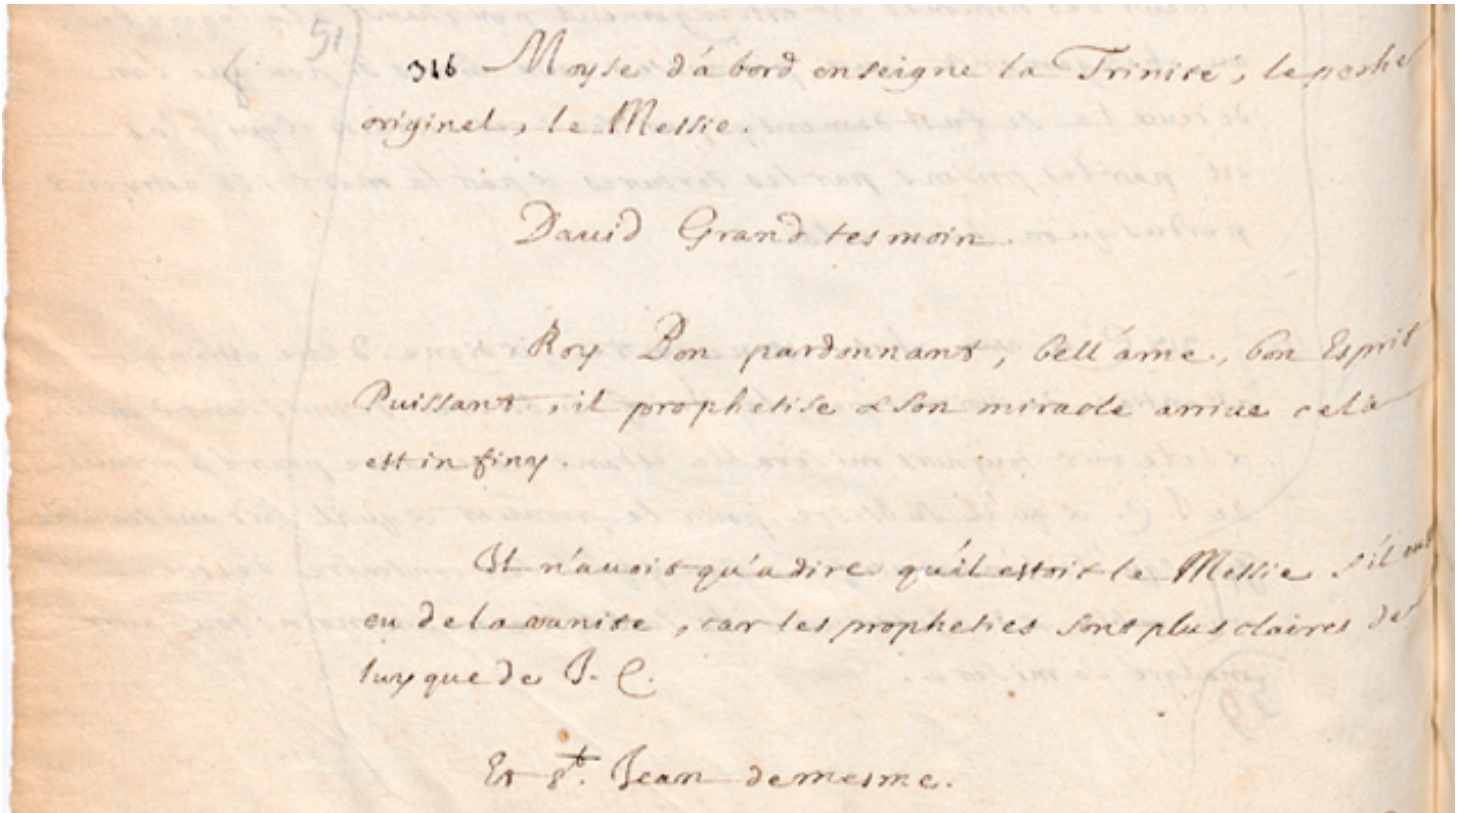 316 Moyse d'abord enseigne la Trinité, le peché
originel, le Messie.
David Grand tesmoin.
Roy Bon pardonnant, bell'ame, bon Esprit
Puissant, il prophetise & son miracle arriue cela
est infiny.
Il n'auoit qu'a dire qu'il estoit le Messie s'il eut
eu de la vanité, car les propheties sont plus claires de
luy que de J. C.
Et St. Jean de mesme.